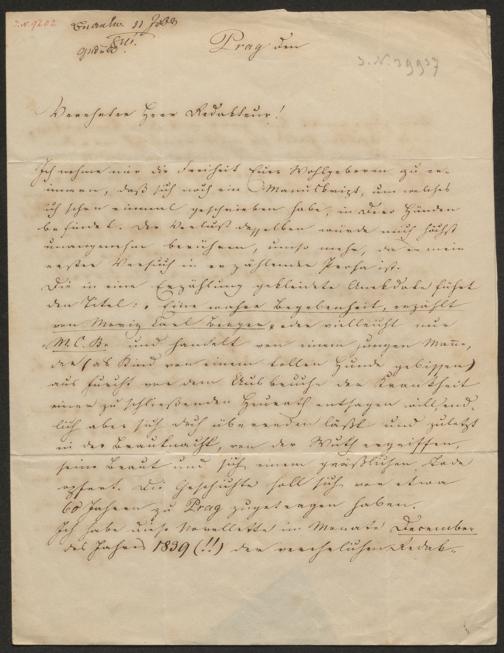 J.N. 9202
Prag den
J.N. 39937
Verehrter Herr Redakteur!
Ich nehme mir die Freiheit Euer Wohlgeboren zu er-
innern, daß sich noch ein Manuskript, um welches
ich schon einmal geschrieben habe, in Ihren Händen
befindet. Der Verlust desselben würde mich höchst
unangenehm berühren, umso mehr, da er mein
erster Versuch in erzählender Prosa ist.
Die in eine Erzählung gekleidete Anekdote führt
den Titel: „Eine wahre Begebenheit, erzählt
von Moriz Karl oder vielleicht nur
M.C.B. und handelt von einem jungen Manne,
der (als Kind von einem tollen Hunde gebissen)
aus Furcht vor dem Ausbruche der Krankheit
einer zu schließenden Heurath entsagen will, end-
lich aber sich doch überreden läßt und zuletzt
in der Brautnacht, von der Wuth ergriffen,
seine Braut und sich einem gräßlichen Tode
opfert. Die Geschichte soll sich vor etwa
60 Jahren zu Prag zugetragen haben.
Ich habe diese Novellette im Monate December
des Jahres 1839 (!!) der verehrlichen Redak-